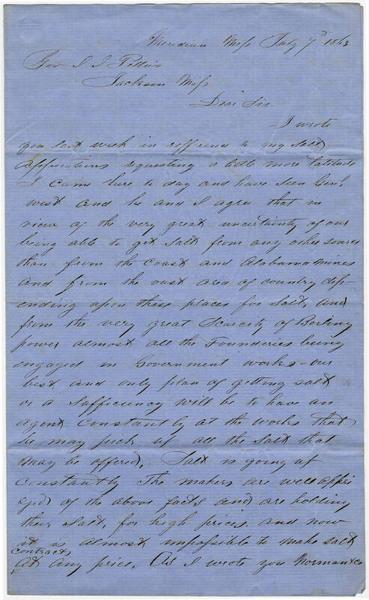 Meridian Miss July 7th 1863
Gov. J. J. Pettus
Jackson Miss
Dear Sir
I wrote
you last week in reference to my Salt
opperations requesting a little more latitude
I came here to day and have seen Genl.
West and he and I agree that in
view of the very great uncertainty of our
being able to get Salt from any other source
than from the Coast and Alabama mines
and from the vast area of country dep-
ending upon these places for Salt, and
from the very great Scarcity of Boiling
power almost all the Founderies being
engaged in Government works - our
best and only plan of getting salt
in a Sufficiency will be to have an
agent Constantly at the works that
he may pick up all the Salt that
may be offered. Salt is going up
Constantly The makers are well appri
zed of the above facts and are holding
their Salt, for high prices, and now
it is almost impossible to make salt
contracts
at any price. As I wrote you Norman & Co